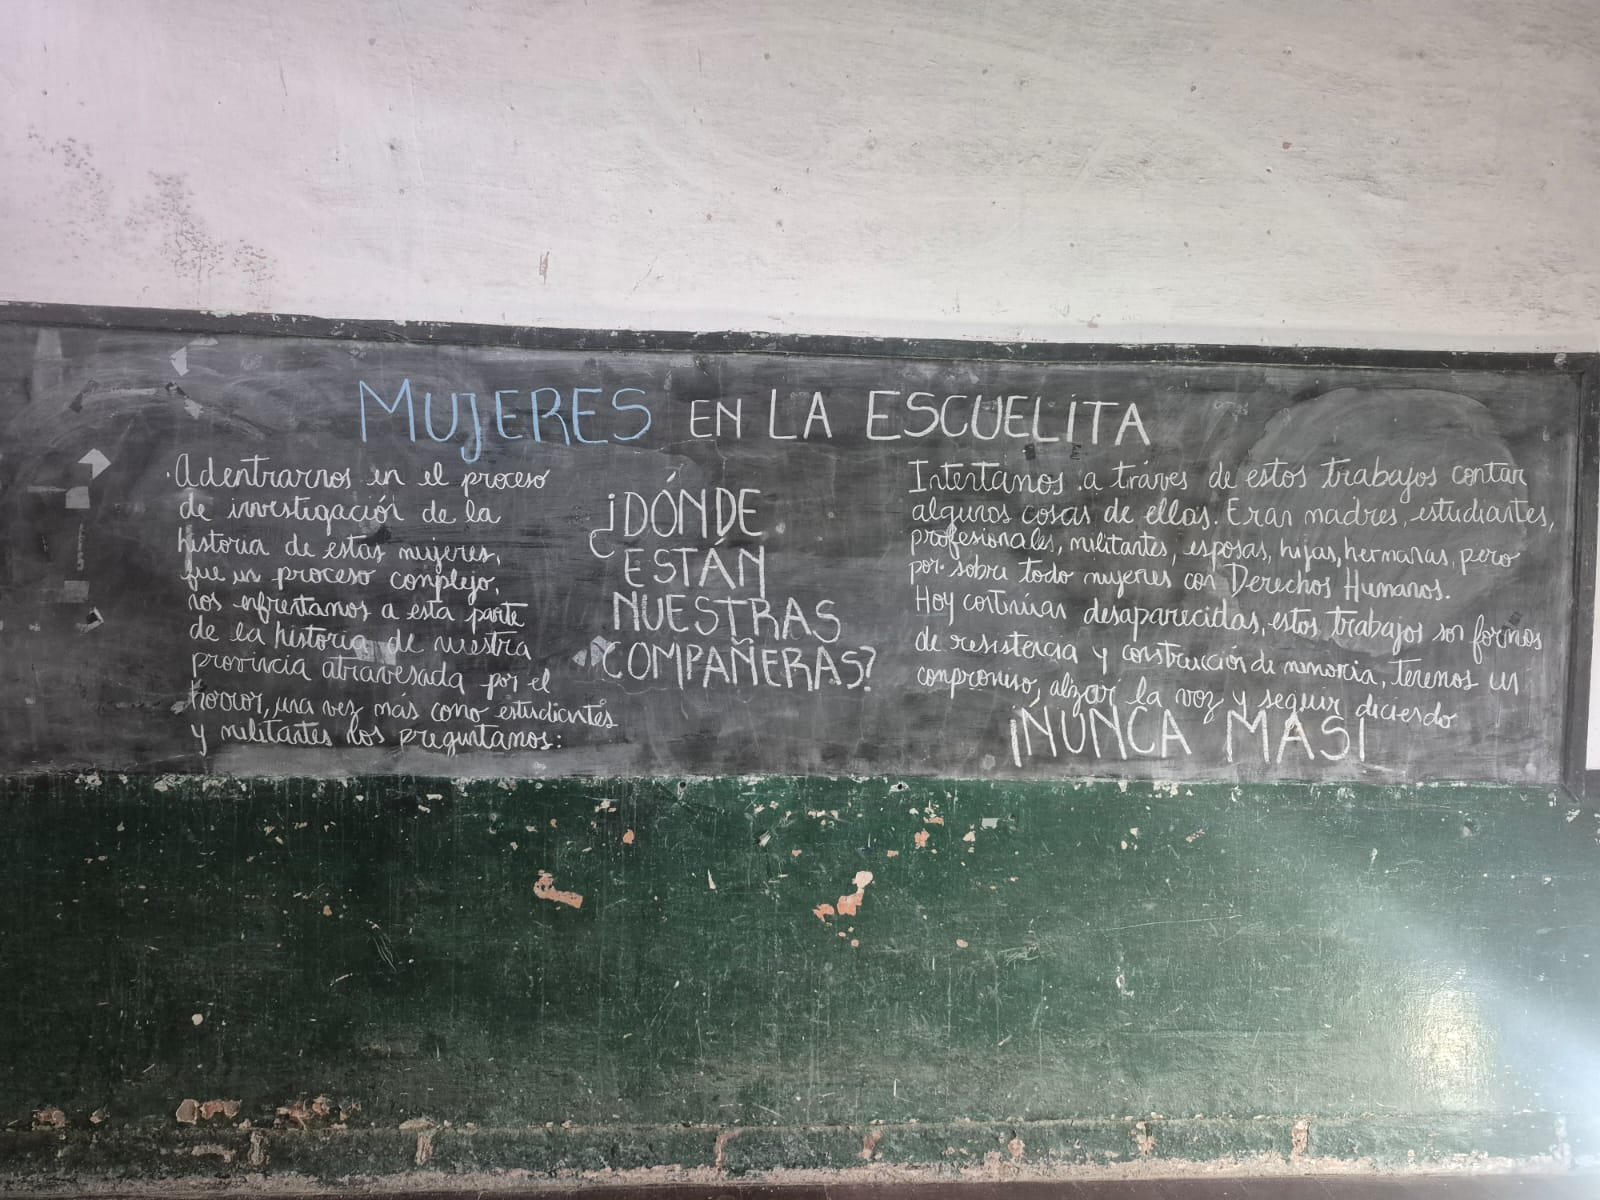 MUJERES EN LA ESCUELITA
Adentrarnos en el proceso
de investigación de la
historia de estas mujeres,
fue un proceso complejo,
nos enfrentamos a esta parte
de la historia de nuestra
provincia atravesada por el
horror, una vez más como estudiantes
y militantes nos preguntamos:
¿DÓNDE
ESTÁN
NUESTRAS
COMPAÑERAS?
Intentamos a tráves de estos trabajos contar
algunas cosas de ellas. Eran madres, estudiantes,
profesionales, militantes, esposas, hijas, hermanas, pero
por sobre todo mujeres con Derechos Humanos.
Hoy continúan desaparecidas, estos trabajos son formas
de resistencia y construcción de memoria, tenemos un
compromiso, alzar la voz y seguir diciendo
¡NUNCA MAS!